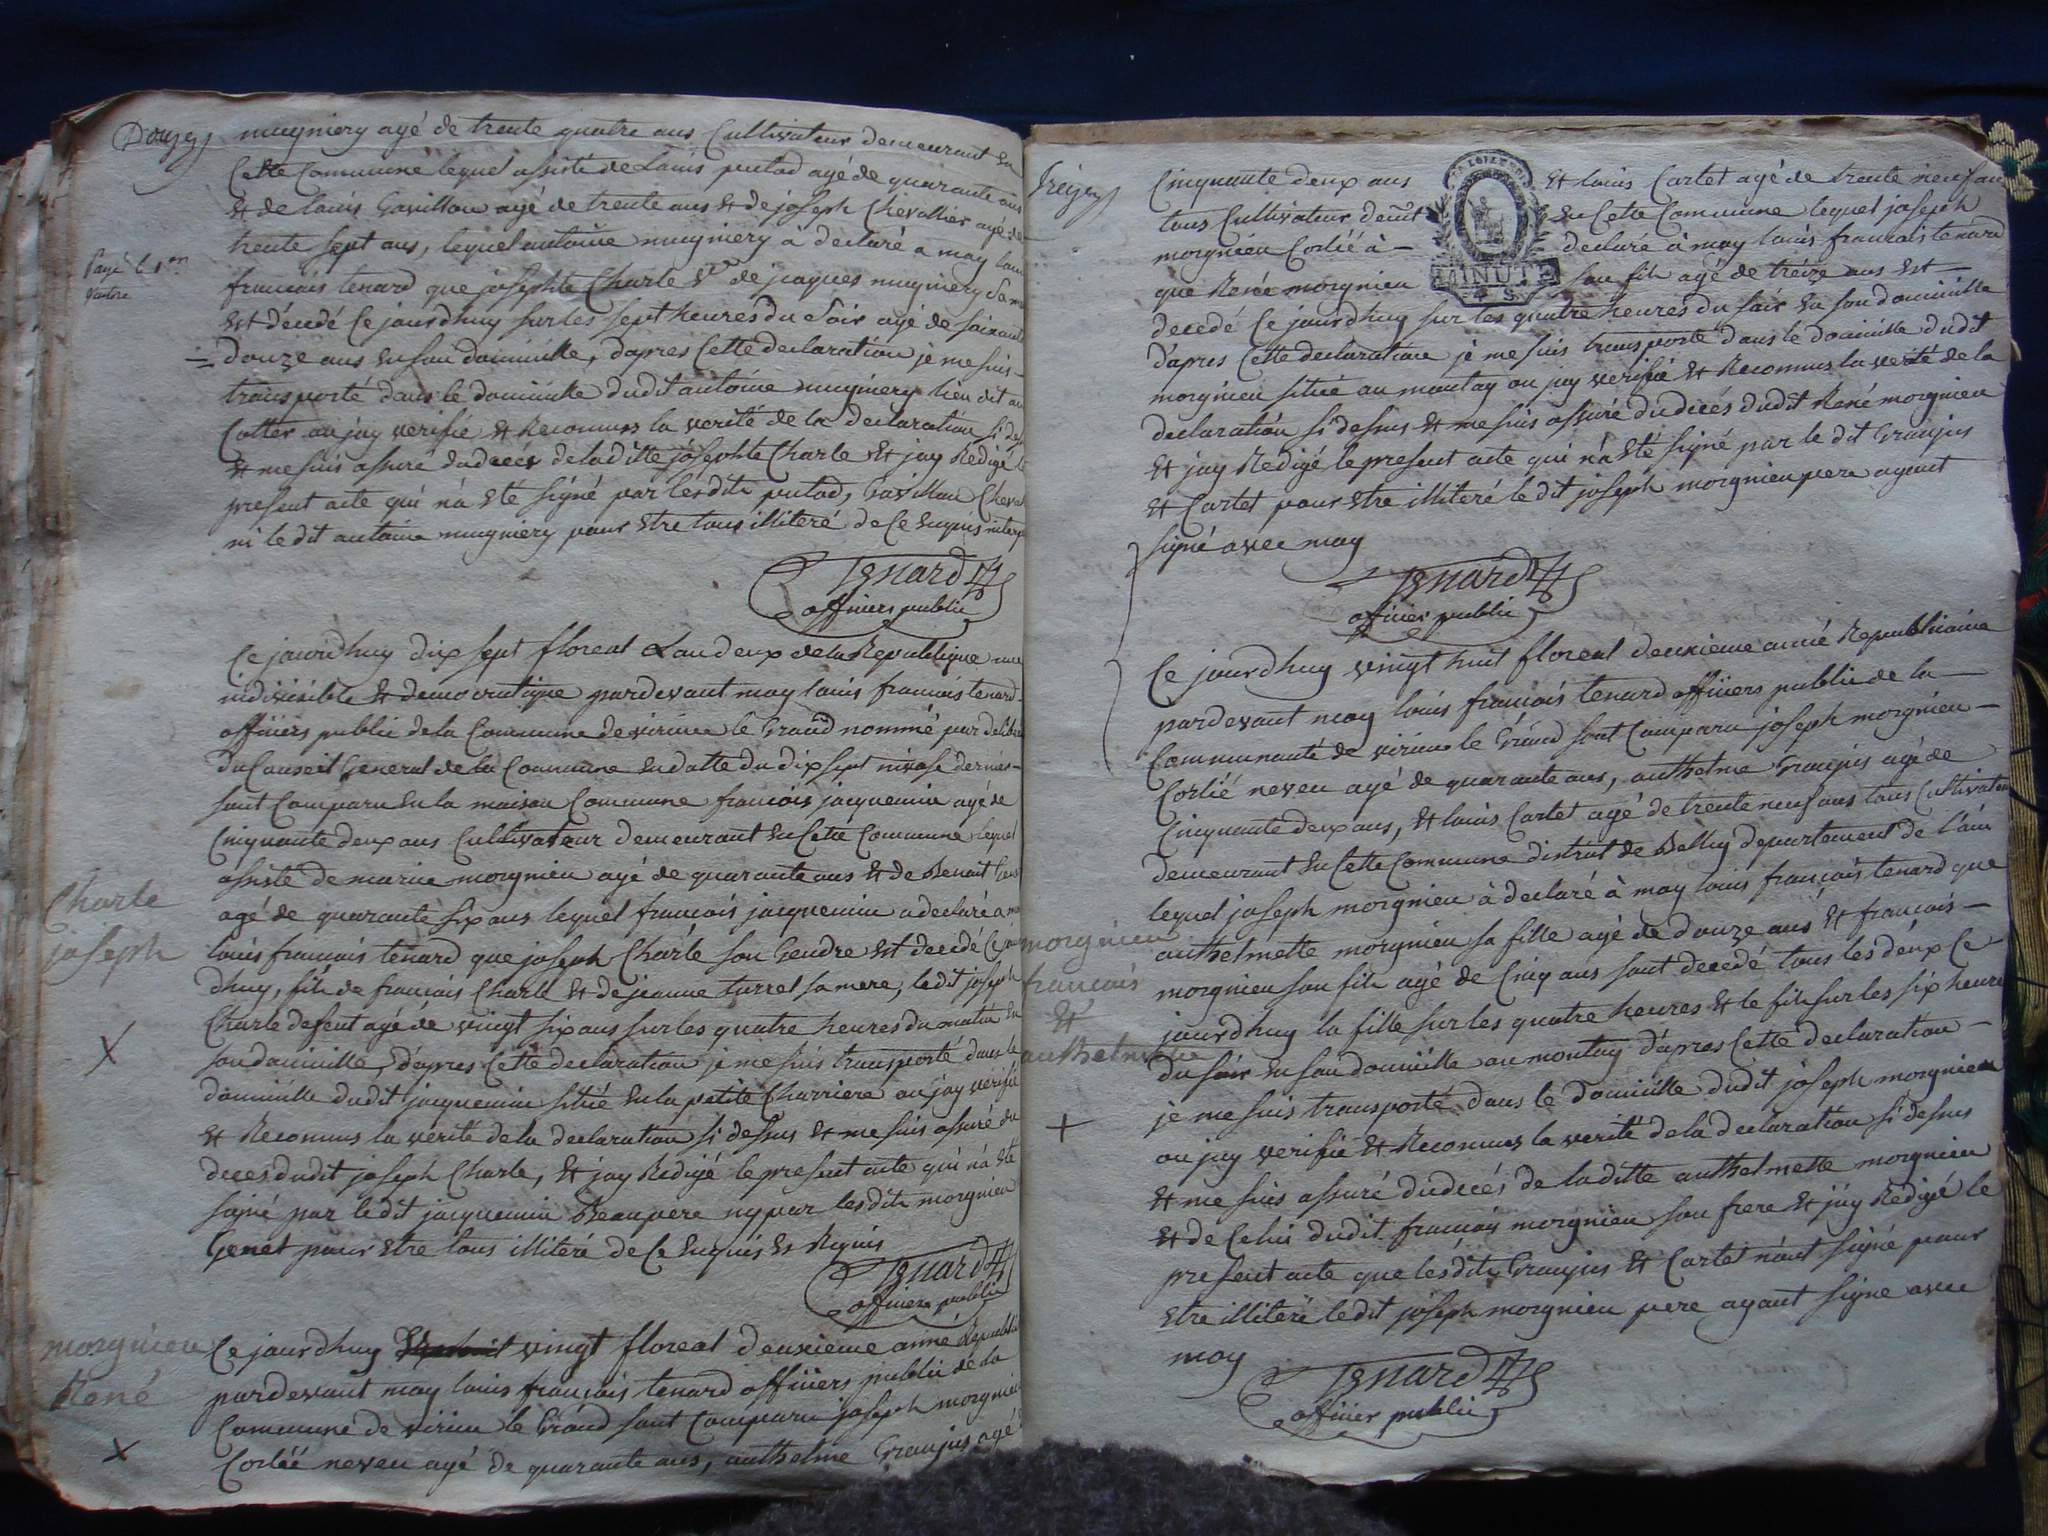 Douze
mugniery agé de trente quatre ans Cultivateur demeurant en
Cette Commune lequel assisté de Louis putod agé de quarante ans
Et de louis Gavillon agé de trente ans Et de joseph Chevallier agé de
trente sept ans, lequel antoine mugniery à declaré a moy louis
francois tenard que josephte Charle Ve de jacques mugniery sa mere
Est décedé Ce jourdhuy sur les sept heures du Soir agé de soixante
Douze ans En son domicille, d'apres Cette declaration je me suis
transporté dans le domicille dudit antoine mugniery lieu dit au
Cotter ou jay verifié et Reconnus la verité de la declaration si dessus
Et me suis assuré du deces de la ditte josephte Charle Et jay Redigé le
present acte qui n'a Eté signé par lesdits putod, Gavillon Chevallier
ni le dit antoine mugniery pour Etre tous illiteré de Ce Enquis
Tenard
officiers public
Ce jourdhuy dix sept floreal Landeux de la Republique une
indivisible Et democratique pardevant moy louis francois tenard
officiers public de la Commune de virieu le Grand nommé par
du Conseil General de la Commune En datte du dix sept nivose dernier
sont Comparu En la maison Commune francois jacquemin agé de
Cinquante deux ans Cultivateur demeurant En Cette Commune lequel
assisté de marin morgnieu agé de quarante ans Et de Benoit
agé de quarante six ans lequel francois jacquemin a declaré a moy
Charle
joseph
louis francois tenard que joseph Charle son Gendre Est decedé Ce jour
dhuy, fils de francois Charle Et de jeanne turrel sa mere, ledit joseph
Charle defunt agé de vingt six ans sur les quatre heures du matin En
son domicille, d'apres Cette declaration je me suis transporté dans le
domicille dudit jacquemin sitié En la petite Charriere ou jay verifié
Et Reconnus la verité de la declaration si dessus Et me suis assuré du
deces dudit joseph Charle, Et jay Redigé le present acte qui n'a Eté
signé par ledit jacquemin Beaupere ny par lesdits morgnieu
Genet pour Etre tous illiteré de Ce Enquis Et Réquis
Tenard
officiers public
morgnieu
René
Ce jourdhuy vingt floreal deuxieme année
pardevant moy louis francois tenard officiers public de la
Commune de virieu le Grand sont Comparu joseph morgnieu
Corlié neveu agé de quarante ans, anthelme Granjus agé
treize
Cinquante deux ans Et louis Cartet agé de trente neuf ans
tous Cultivateur En Cette Commune lequel joseph
morgnieu Corlié à declaré à moy louis francois tenard
MINUTE
que René morgnieu son fils agé de treize ans Est
decedé Ce jourdhuy sur les quatre heures du soir En son domicille
d'apres Cette declaration je me suis transporté dans le domicille dudit
morgnieu sitiée au montay ou jay verifié Et Reconnus la verité de la
declaration si dessus Et me suis assuré du decés dudit René morgnieu
Et jay Redigé le present acte qui n'a Eté signé par le dit Granjus
Et Cartet pour Etre illiteré le dit joseph morgnieu pere ayant
signé avec moy
Tenard
officier public
Ce jourdhuy vingt huit floreal deuxieme année Republicaine
pardevant moy louis francois tenard officiers public de la
Communauté de virieu le Grand sont Comparu joseph morgnieu
Corlié neveu agé de quarante ans, anthelme Granjus agé de
Cinquante deux ans, Et louis Cartet agé de trente neuf ans tous Cultivateur
demeurant En Cette Commune district de Belley departement de L'ain
lequel joseph morgnieu à declaré à moy louis francois tenard que
morgnieu
francois
Et
anthelmette
anthelmette morgnieu sa fille agé de douze ans Et francois
morgnieu son fils agé de Cinq ans sont decedé tous les deux Ce
jourdhuy la fille sur les quatre heures Et le fils sur les six heures
du soir En son domicille au montay d'apres Cette declaration
je me suis transporté dans le domicille dudit joseph morgnieu
ou jay verifié Et Reconnus la verité de la declaration si dessus
Et me suis assuré du decés de la ditte anthelmette morgnieu
Et de Celui dudit francois morgnieu son frere Et jay Redigé le
present acte que lesdits Granjus Et Cartet n'ont signé pour
Etre illiteré ledit joseph morgnieu pere ayant signé avec
moy
Tenard
officier public